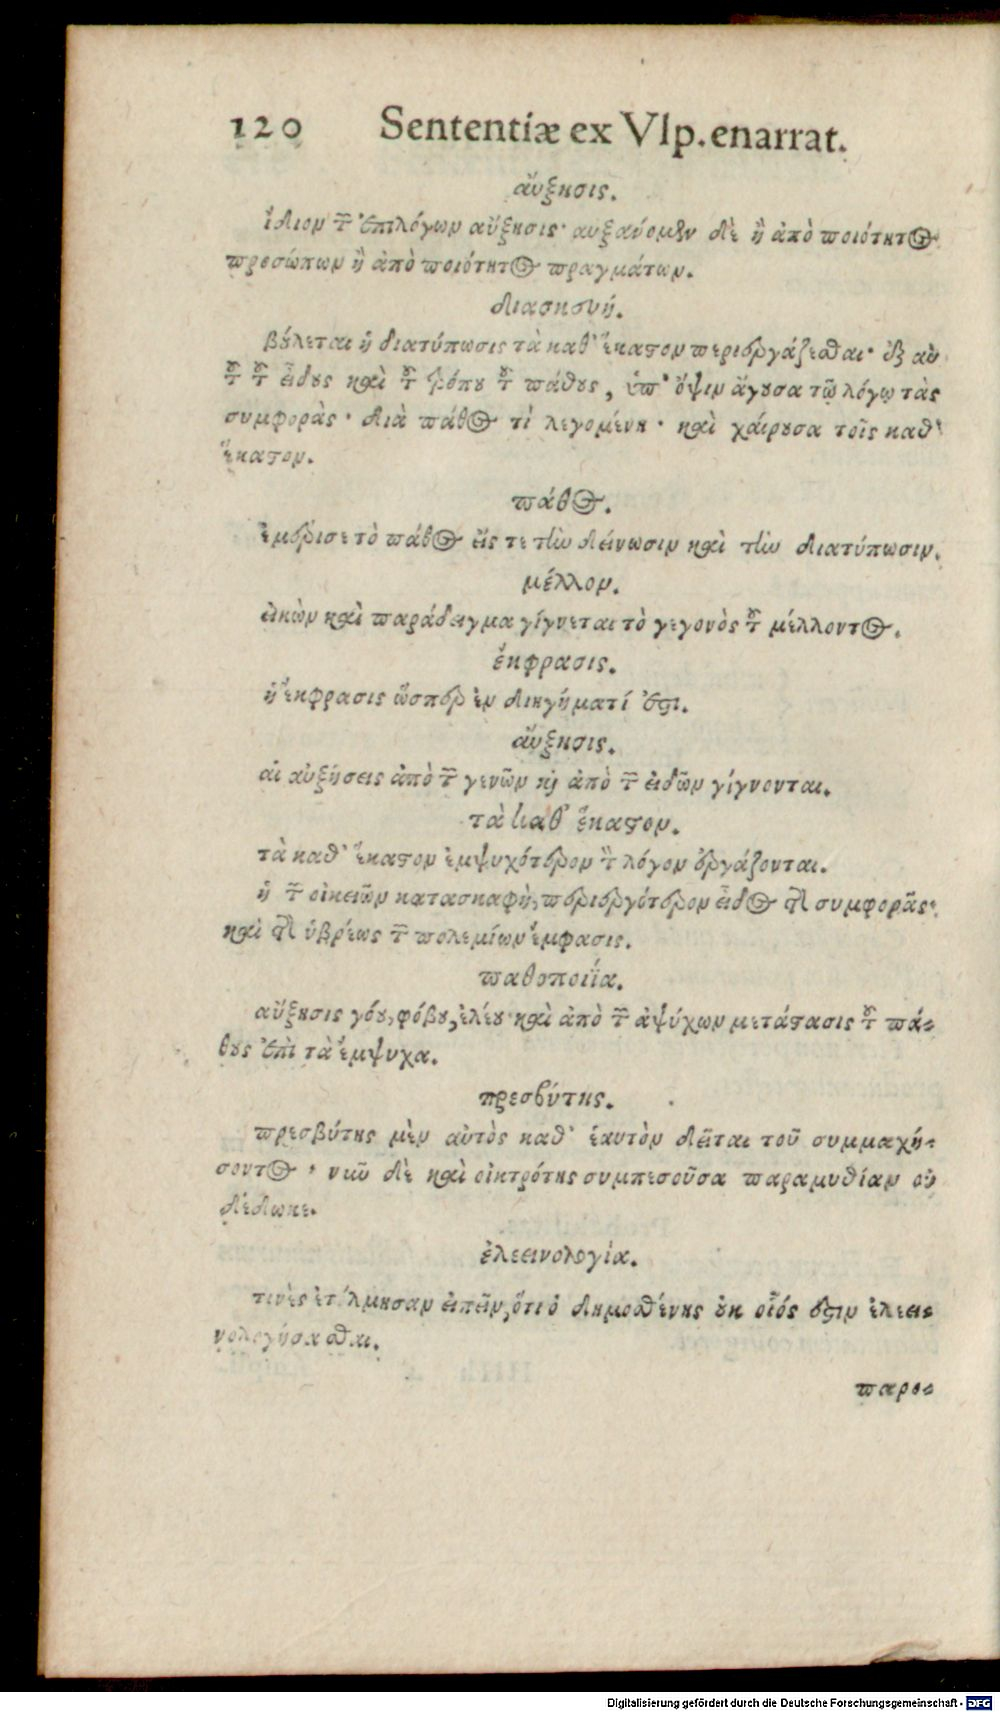 120 Sententiæ ex Vlp. enarrat.
αὔξησις.
ἴδιον τῶν ἐπιλόγων αὔξησις· αυξανόμεν δὲ ἢ ἀπὸ ποιότητος
προσώπων ἢ ἀπὸ ποιότητος πραγμάτων.
διασκευή.
βούλεται ἡ διατύπωσις τὰ καθ' ἕκαστον περιεργάζεσθαι· ἐξ αὐ
τοῦ τοῦ εἴδους καὶ τοῦ τρόπου τοῦ πάθους, ὑπ' ὄψιν ἄγουσα τῷ λόγῳ τὰς
συμφορὰς· διὰ πάθος τὶ λεγομένη· καὶ χαίρουσα τοῖς καθ'
ἕκαστον.
πάθος.
ἐμέρισε τὸ πάθος εἴς τε τὴν δείνωσιν καὶ τὴν διατύπωσιν.
μέλλον.
εἰκὼν καὶ παράδειγμα γίγνεται τὸ γεγονὸς τοῦ μέλλοντος.
ἔκφρασις.
ἡ ἔκφρασις ὥσπερ ἐν διηγήματί ἐστι.
αὔξησις.
αἱ αὐξήσεις ἀπὸ τῶν γενῶν καὶ ἀπὸ τῶν εἰδῶν γίγνονται.
τὰ καθ' ἕκαστον.
τὰ καθ' ἕκαστον ἐμψυχότερον τὸν λόγον ἐργάζονται.
ἡ τῶν οἰκειῶν κατασκαφὴ, περιεργότερον εἶδος τῆς συμφορᾶς·
καὶ τῆς ὑβρέως τῶν πολεμίων ἔμφασις.
παθοποιΐα.
αὔξησις γόου, φόβου, ἐλέου· καὶ ἀπὸ τῶν ἀψύχων μετάστασις τοῦ πά-
θους ἐπὶ τὰ ἔμψυχα.
πρεσβύτης.
πρεσβύτης μὲν αὐτὸς καθ' ἑαυτὸν δεῖται τοῦ συμμαχή-
σοντος, νῦν δὲ καὶ οἰκτρότης συμπεσοῦσα παραμυθίαν οὐ
δέδωκε.
ἐλεεινολογία.
τινὲς ἐτόλμησαν εἰπεῖν, ὅτι ὁ Δημοσθένης οὐκ οἷός ἐστιν ἐλεει-
νολογήσασθαι.
παρο-
Digitalisierung gefördert durch die Deutsche Forschungsgemeinschaft - DFG